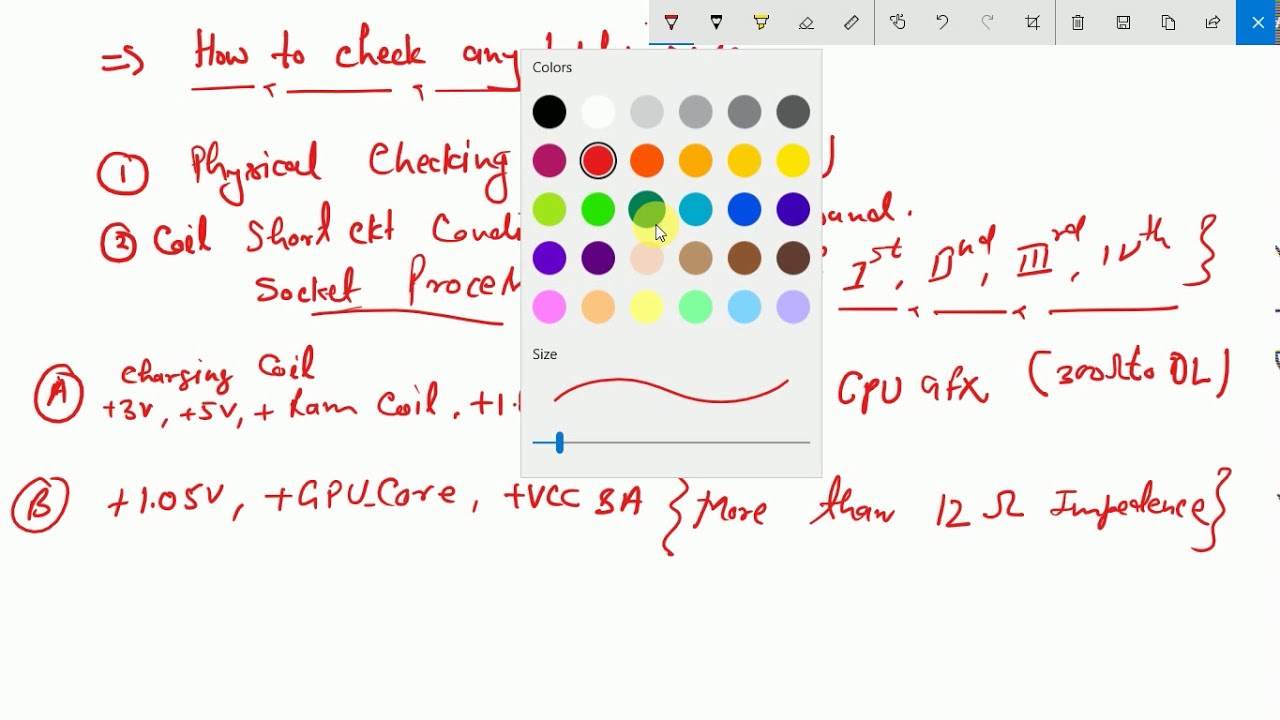 ⇒ How to check any
Colors
① Physical Checking
② Coil Short ckt Condi
Socket Proce Ist, IInd, IIIrd, IVth }
Size
Ⓐ charging Coil
+3V, +5V, + Ram Coil, +1. CPU GFX (300Ω to OL)
Ⓑ +1.05V, +GPU_Core, +VCC SA {More than 12 Ω Impedence}